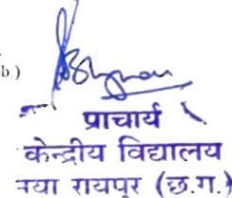 b.)
प्राचार्य
केन्द्रीय विद्यालय
नया रायपुर (छ.ग.)